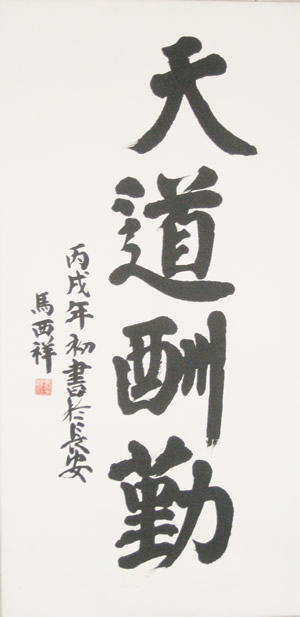 天道酬勤
丙戌年初書於長安
馬西祥